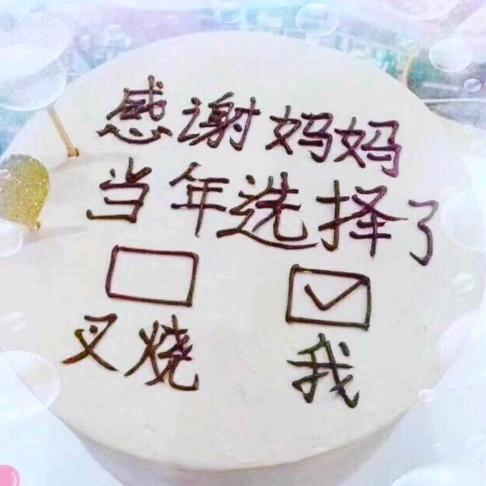 感谢妈妈
当年选择了
☐ ☑
叉烧 我